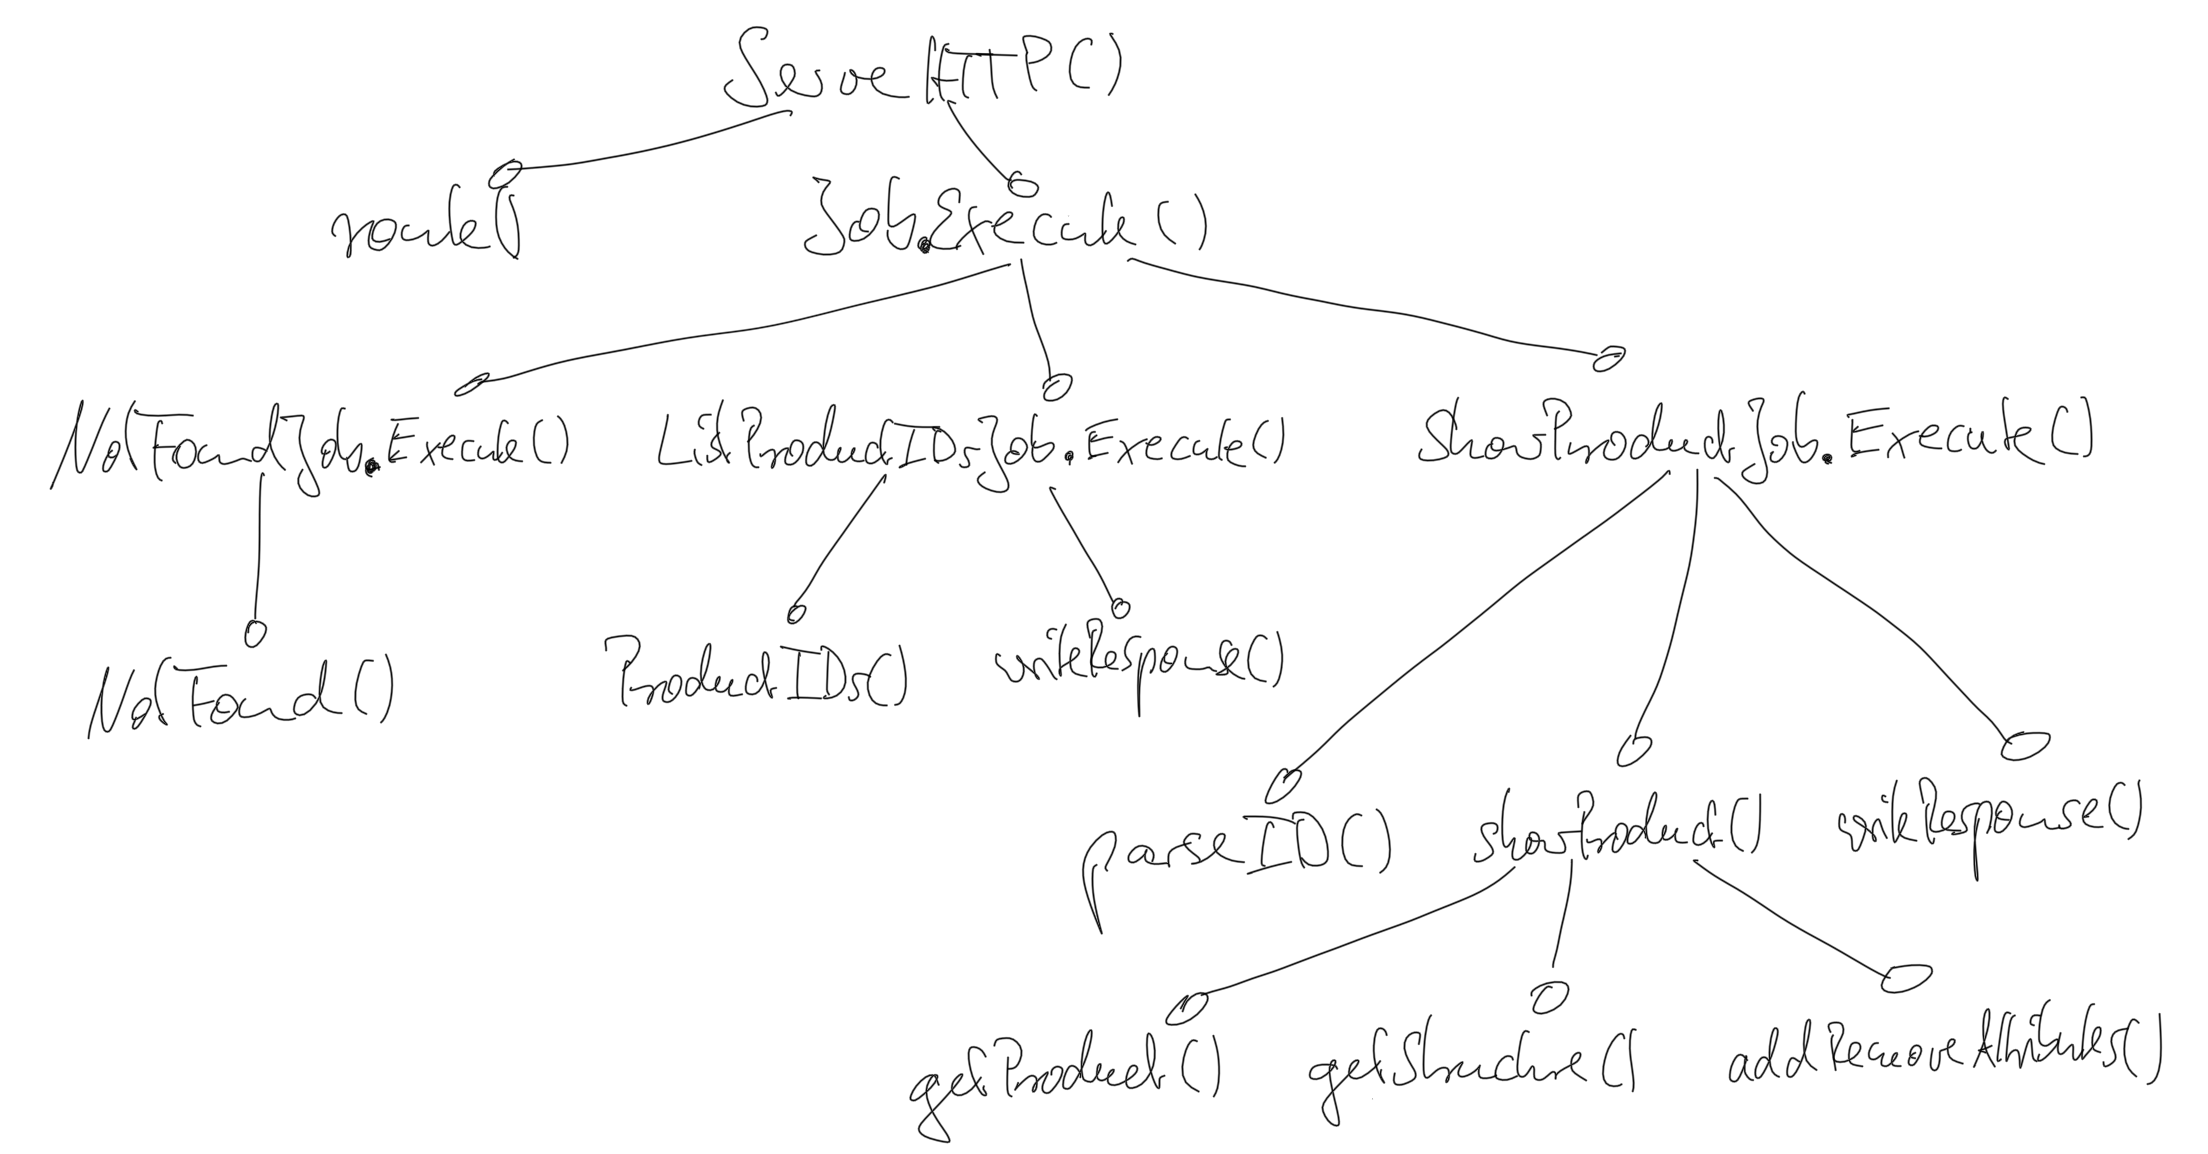 ServeHTTP()
route()
Job.Execute()
NotFoundJob.Execute()
ListProductIDsJob.Execute()
ShowProductJob.Execute()
NotFound()
ProductIDs()
writeResponse()
parseID()
showProduct()
writeResponse()
getProduct()
getStructure()
addRemoveAttributes()